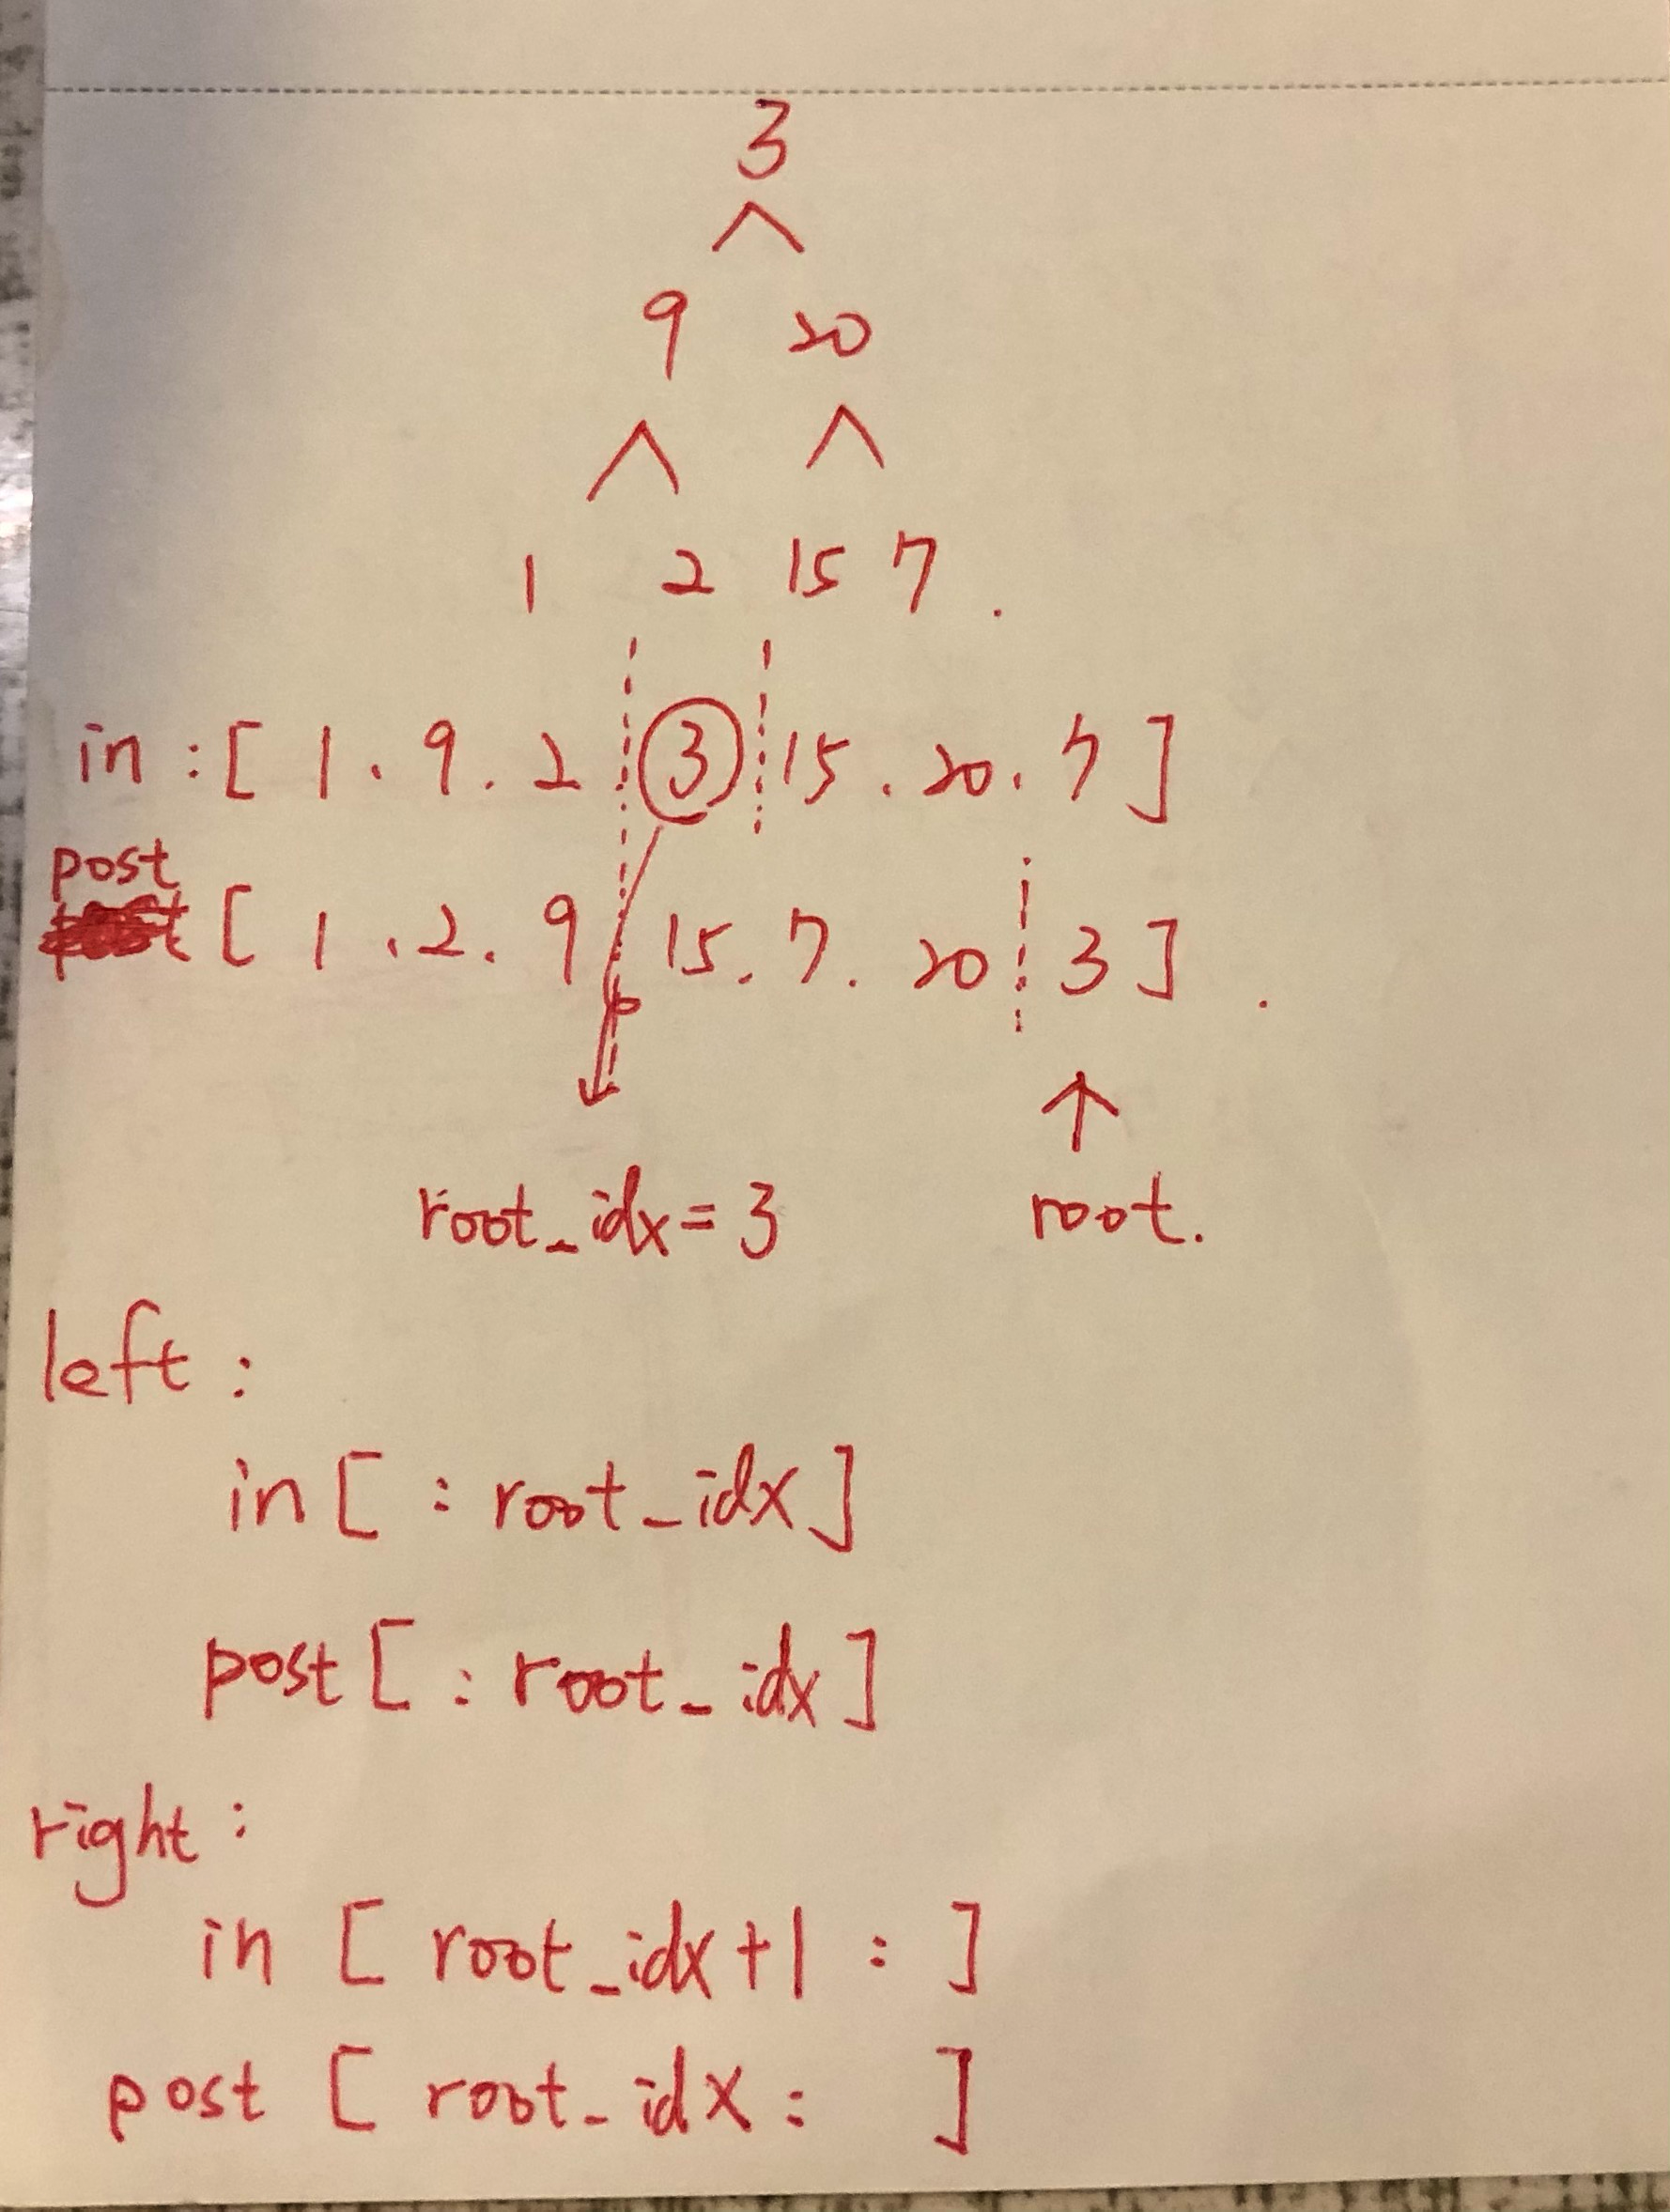 3
9 20
1 2 15 7 .
in : [ 1 . 9 . 2 3 15 . 20 . 7 ]
post
[ 1 . 2 . 9 15 . 7 . 20 3 ] .
root_idx = 3 root.
left :
in [ : root_idx ]
post [ : root_idx ]
right :
in [ root_idx + 1 : ]
post [ root_idx : ]